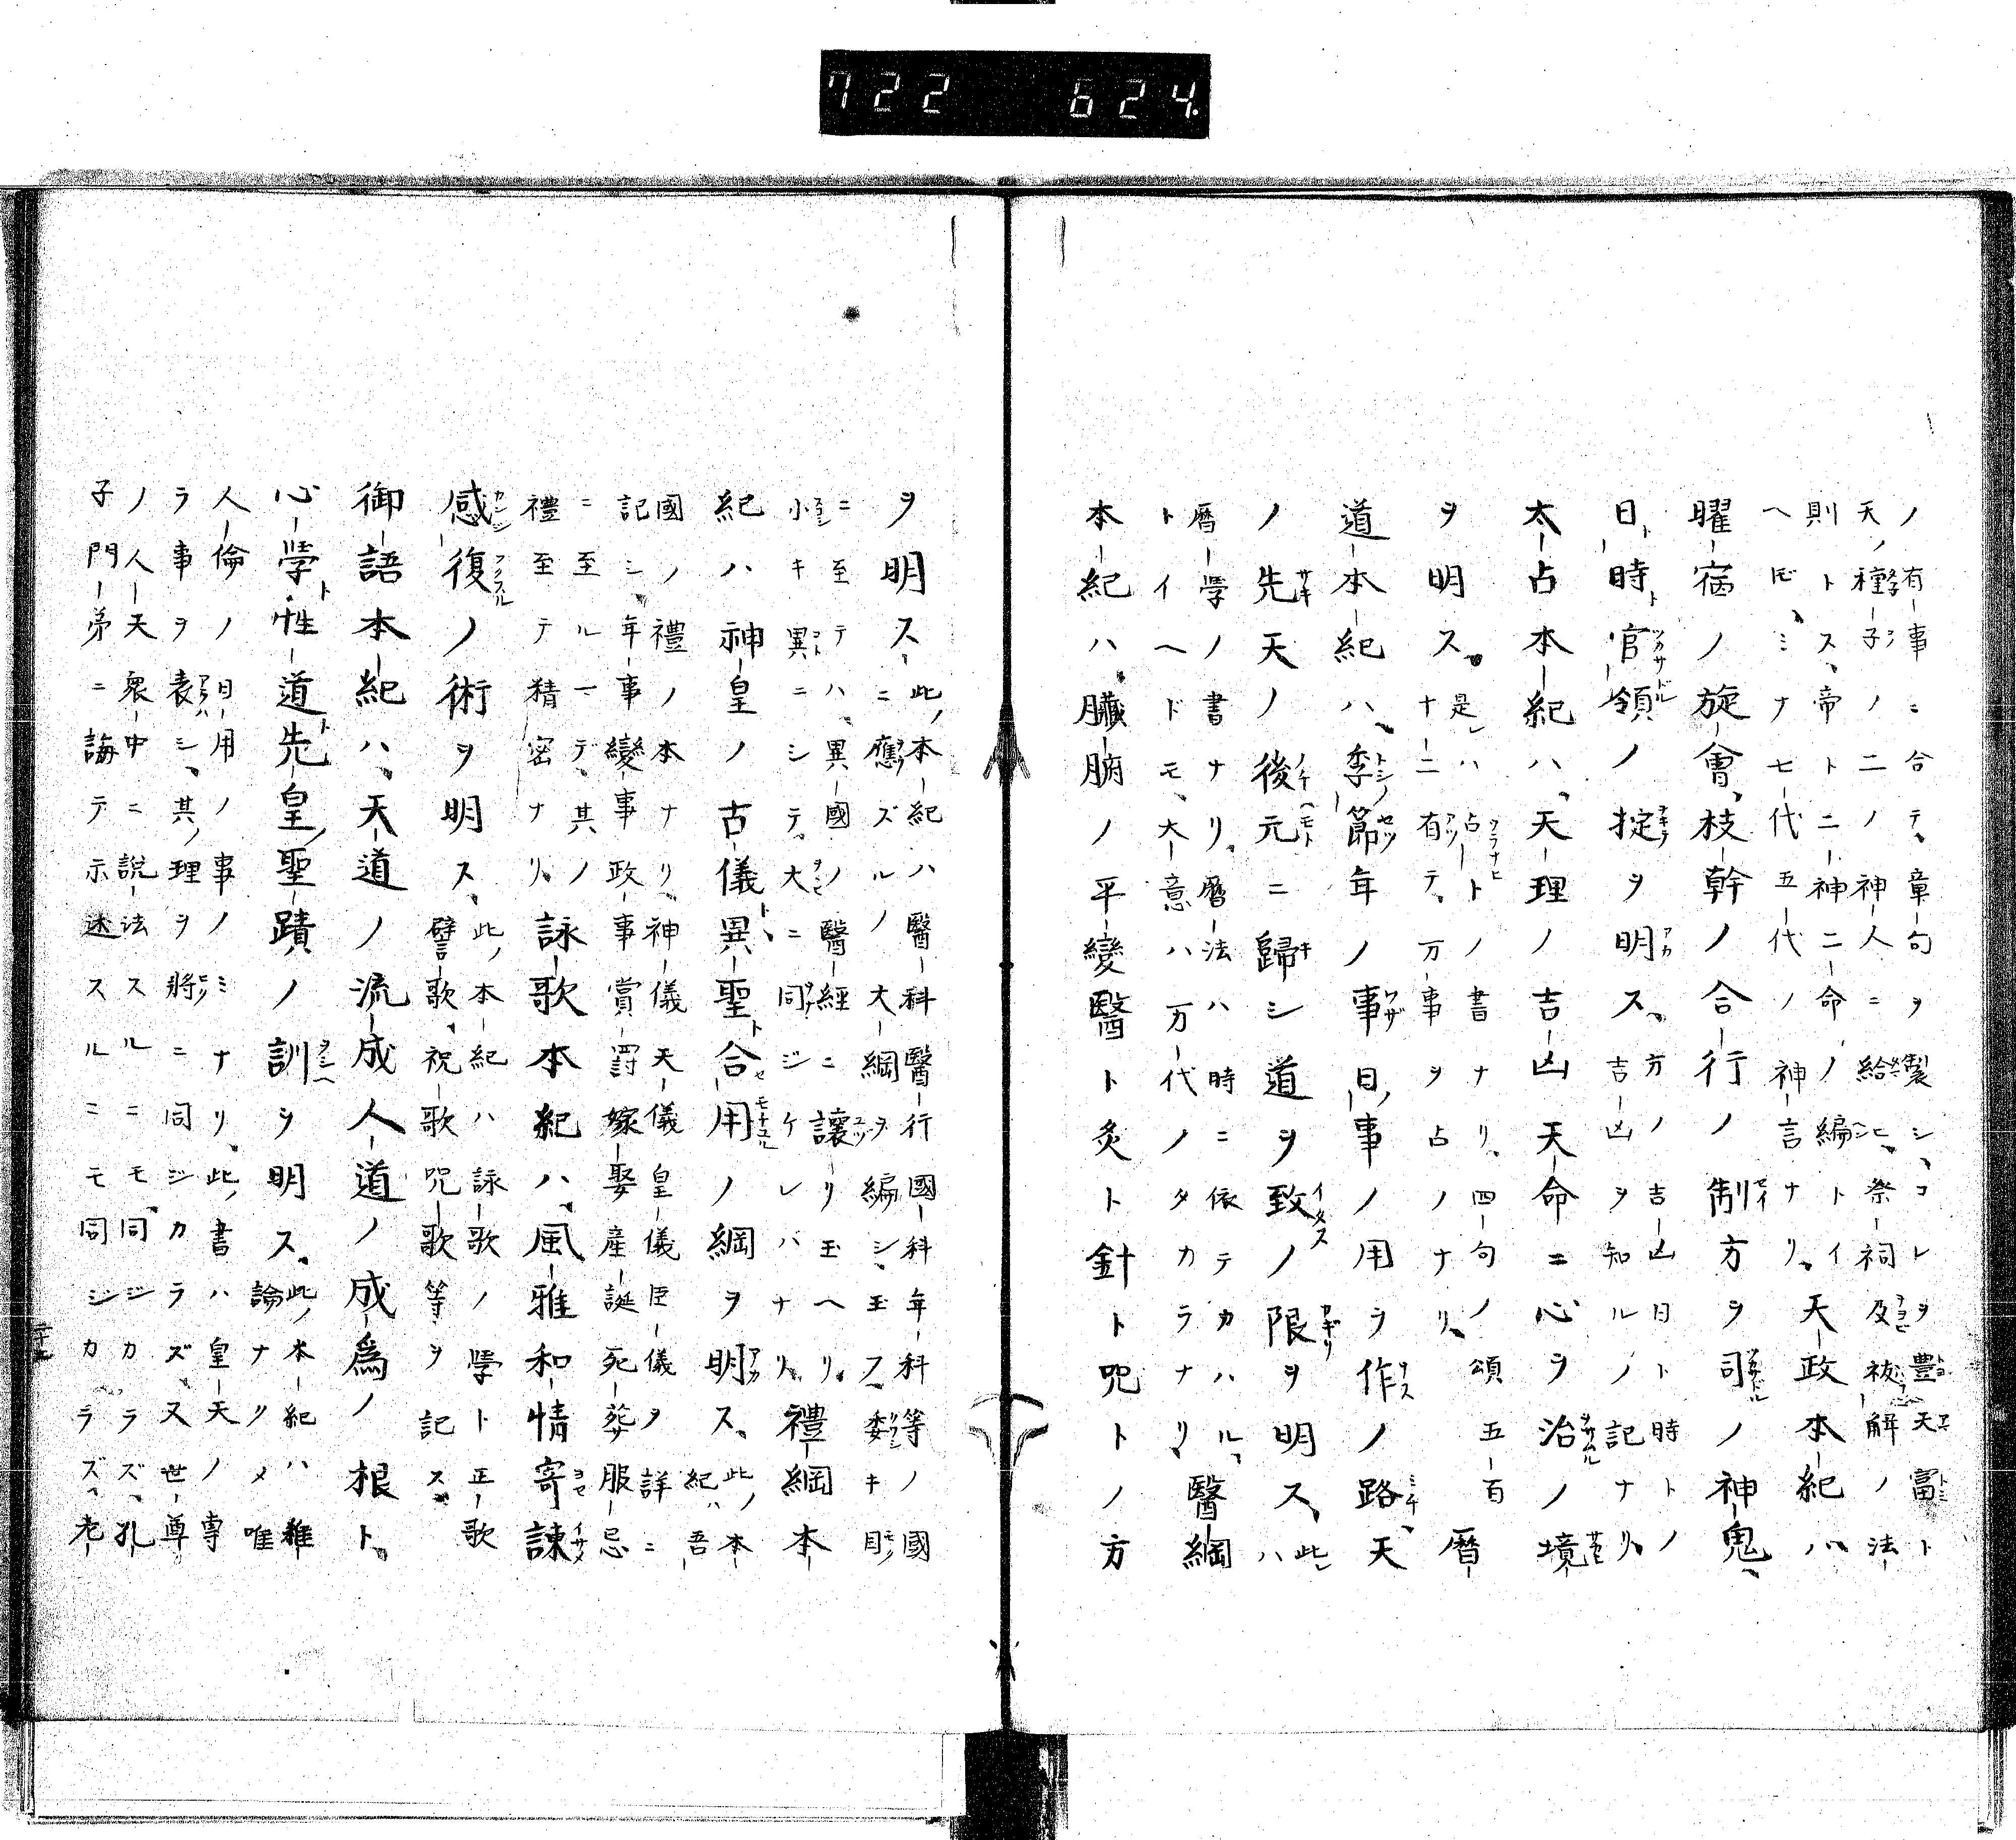 722 624
ノ有事ニ合テ、章句ヲ製シ、コレヲ豊天富ト
天ノ種子ノ二ノ神人ニ給ヒ、祭祠及祓解ノ法
則トス、帝トニ神二命ノ編トイ
ヘ𪜈、ミナ七代五代ノ神言ナリ。天政本紀ハ
曜宿ノ旋會、枝幹ノ合行ノ制方ヲ司ノ神鬼、
日時官領ノ掟ヲ明ス。方ノ吉凶日ト時トノ
吉凶ヲ知ルノ記ナリ。
太占本紀ハ、天理ノ吉凶天命ニ心ヲ治ノ境
ヲ明ス。是ハ占トノ書ナリ。四句ノ頌五百
十二有テ。万事ヲ占ノナリ。曆
道本紀ハ、季節年ノ事日事ノ用ヲ作ノ路、天
ノ先天ノ後元ニ歸シ道ヲ致ノ限ヲ明ス、此ハ
曆學ノ書ナリ。曆法ハ時ニ依テカハル、
トイヘドモ、大意ハ万代ノタカラナリ、醫綱
本紀ハ、臟腑ノ平變醫ト灸ト針ト呪トノ方
ヲ明ス、此ノ本紀ハ醫科醫行國科年科等ノ國
ニ應ズルノ大綱ヲ編シ、玉フ、委キ目
ニ至テハ、異國ノ醫經ニ讓リ玉ヘリ。
小キ異ニシテ。大ニ同ジケレバナリ、禮綱本
紀ハ神皇ノ古儀異聖合用ノ綱ヲ明ス、此ノ本
紀ハ吾
國ノ禮ノ本ナリ、神儀天儀皇儀臣儀ヲ詳ニ
記シ、年事變事政事賞罸嫁娶産誕死葬服忌
ニ至ルーデ、其ノ
禮至テ精密ナリ、詠歌本紀ハ、風雅和情寄諫
感復ノ術ヲ明ス、此ノ本紀ハ詠歌ノ學ト正歌
譬歌、祝歌呪歌等ヲ記ス。
御語本紀ハ、天道ノ流成人道ノ成爲ノ根ト、
心學性道先皇ノ聖蹟ノ訓ヲ明ス。此ノ本紀ハ
論ナリメ唯
人倫ノ日用ノ事ノミナリ。此ノ書ハ皇天ノ專
ラ事ヲ表シ、其ノ理ヲ將ニ同ジカラズ、又世尊
ノ人天衆中ニ說法スルニモ同ジカラズ、孔
子門弟ニ誨テ示述スルニモ同ジカラズ、老